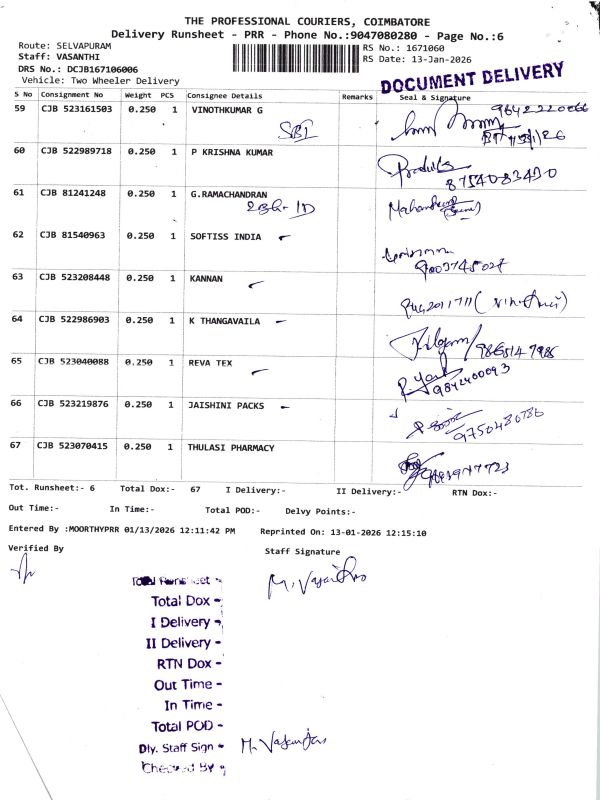 THE PROFESSIONAL COURIERS, COIMBATORE
Delivery Runsheet - PRR - Phone No.:9047080280 - Page No.:6
Route: SELVAPURAM
RS No.: 1671060
Staff: VASANTHI
RS Date: 13-Jan-2026
DRS No.: DCJB167106006
Vehicle: Two Wheeler Delivery
DOCUMENT DELIVERY
S No Consignment No Weight PCS Consignee Details Remarks Seal & Signature
59 CJB 523161503 0.250 1 VINOTHKUMAR G
SBI
60 CJB 522989718 0.250 1 P KRISHNA KUMAR
8754083490
61 CJB 81241248 0.250 1 G.RAMACHANDRAN
62 CJB 81540963 0.250 1 SOFTISS INDIA
9003745027
63 CJB 523208448 0.250 1 KANNAN
64 CJB 522986903 0.250 1 K THANGAVAILA
65 CJB 523040088 0.250 1 REVA TEX
9842400093
66 CJB 523219876 0.250 1 JAISHINI PACKS
67 CJB 523070415 0.250 1 THULASI PHARMACY
Tot. Runsheet:- 6 Total Dox:- 67 I Delivery:- II Delivery:- RTN Dox:-
Out Time:- In Time:- Total POD:- Delvy Points:-
Entered By :MOORTHYPRR 01/13/2026 12:11:42 PM Reprinted On: 13-01-2026 12:15:10
Verified By Staff Signature
Total Runsheet -
M. Vasanthi
Total Dox -
I Delivery -
II Delivery -
RTN Dox -
Out Time -
In Time -
Total POD -
Dly. Staff Sign - M. Vasanthi
Checked By -